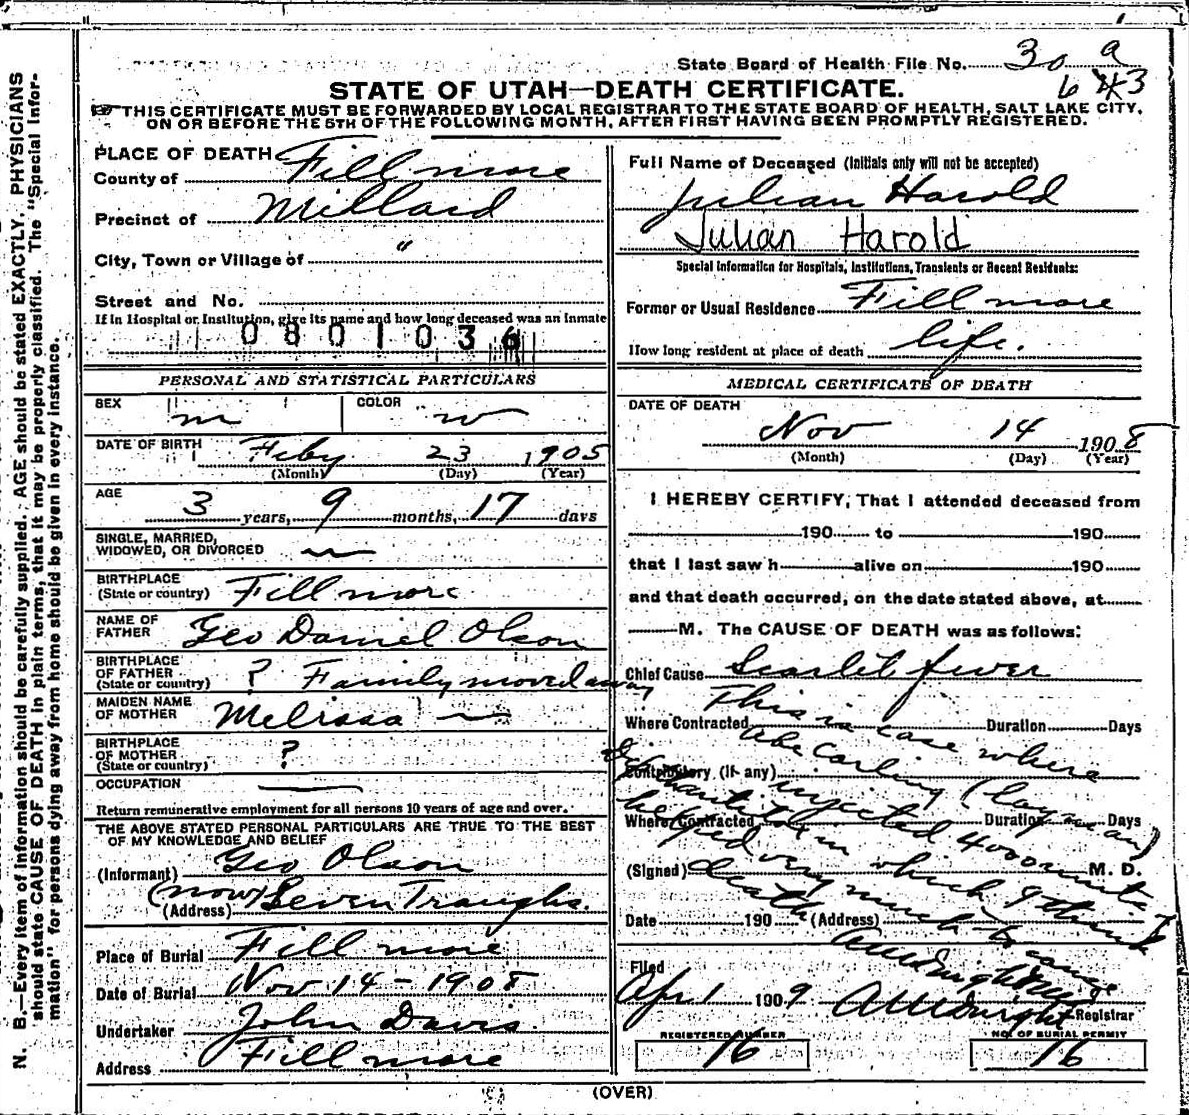 State Board of Health File No. 30 a
6 43
STATE OF UTAH—DEATH CERTIFICATE.
THIS CERTIFICATE MUST BE FORWARDED BY LOCAL REGISTRAR TO THE STATE BOARD OF HEALTH, SALT LAKE CITY,
ON OR BEFORE THE 5TH OF THE FOLLOWING MONTH, AFTER FIRST HAVING BEEN PROMPTLY REGISTERED.
N. B.—Every item of information should be carefully supplied. AGE should be stated EXACTLY. PHYSICIANS
should state CAUSE OF DEATH in plain terms, that it may be properly classified. The "Special Infor-
mation" for persons dying away from home should be given in every instance.
PLACE OF DEATH
County of Fillmore
Precinct of Millard
City, Town or Village of "
Street and No.
If in Hospital or Institution, give its name and how long deceased was an inmate
0801036
PERSONAL AND STATISTICAL PARTICULARS
SEX m COLOR w
DATE OF BIRTH Feby 23 1905
(Month) (Day) (Year)
AGE
3 years, 9 months, 17 days
SINGLE, MARRIED,
WIDOWED, OR DIVORCED
BIRTHPLACE
(State or country) Fillmore
NAME OF
FATHER Geo Daniel Olson
BIRTHPLACE
OF FATHER
(State or country) ? Family moved away
MAIDEN NAME
OF MOTHER Melissa
BIRTHPLACE
OF MOTHER
(State or country) ?
OCCUPATION
Return remunerative employment for all persons 10 years of age and over.
THE ABOVE STATED PERSONAL PARTICULARS ARE TRUE TO THE BEST
OF MY KNOWLEDGE AND BELIEF
(Informant) Geo Olson
(Address) (now) Seven Troughs.
Place of Burial Fillmore
Date of Burial Nov 14 - 1908
Undertaker John Davis
Address Fillmore
Full Name of Deceased (Initials only will not be accepted)
Julian Harold
Julian Harold
Special Information for Hospitals, Institutions, Transients or Recent Residents:
Former or Usual Residence Fillmore
How long resident at place of death life.
MEDICAL CERTIFICATE OF DEATH
DATE OF DEATH
Nov 14 1908
(Month) (Day) (Year)
I HEREBY CERTIFY, That I attended deceased from
190 to 190
that I last saw h alive on 190
and that death occurred, on the date stated above, at
M. The CAUSE OF DEATH was as follows:
Chief Cause Scarlet fever
This is case where
Where Contracted Duration Days
Abe Carling (layman)
Contributory (if any)
injected 4000 units
Where Contracted Duration Days
Diphtheria antitoxin which I think
(Signed) M. D.
helped very much to cause
death
Date 190 (Address)
Filed
Apr 1 1909 Registrar
REGISTERED NUMBER
16
NO. OF BURIAL PERMIT
16
(OVER)